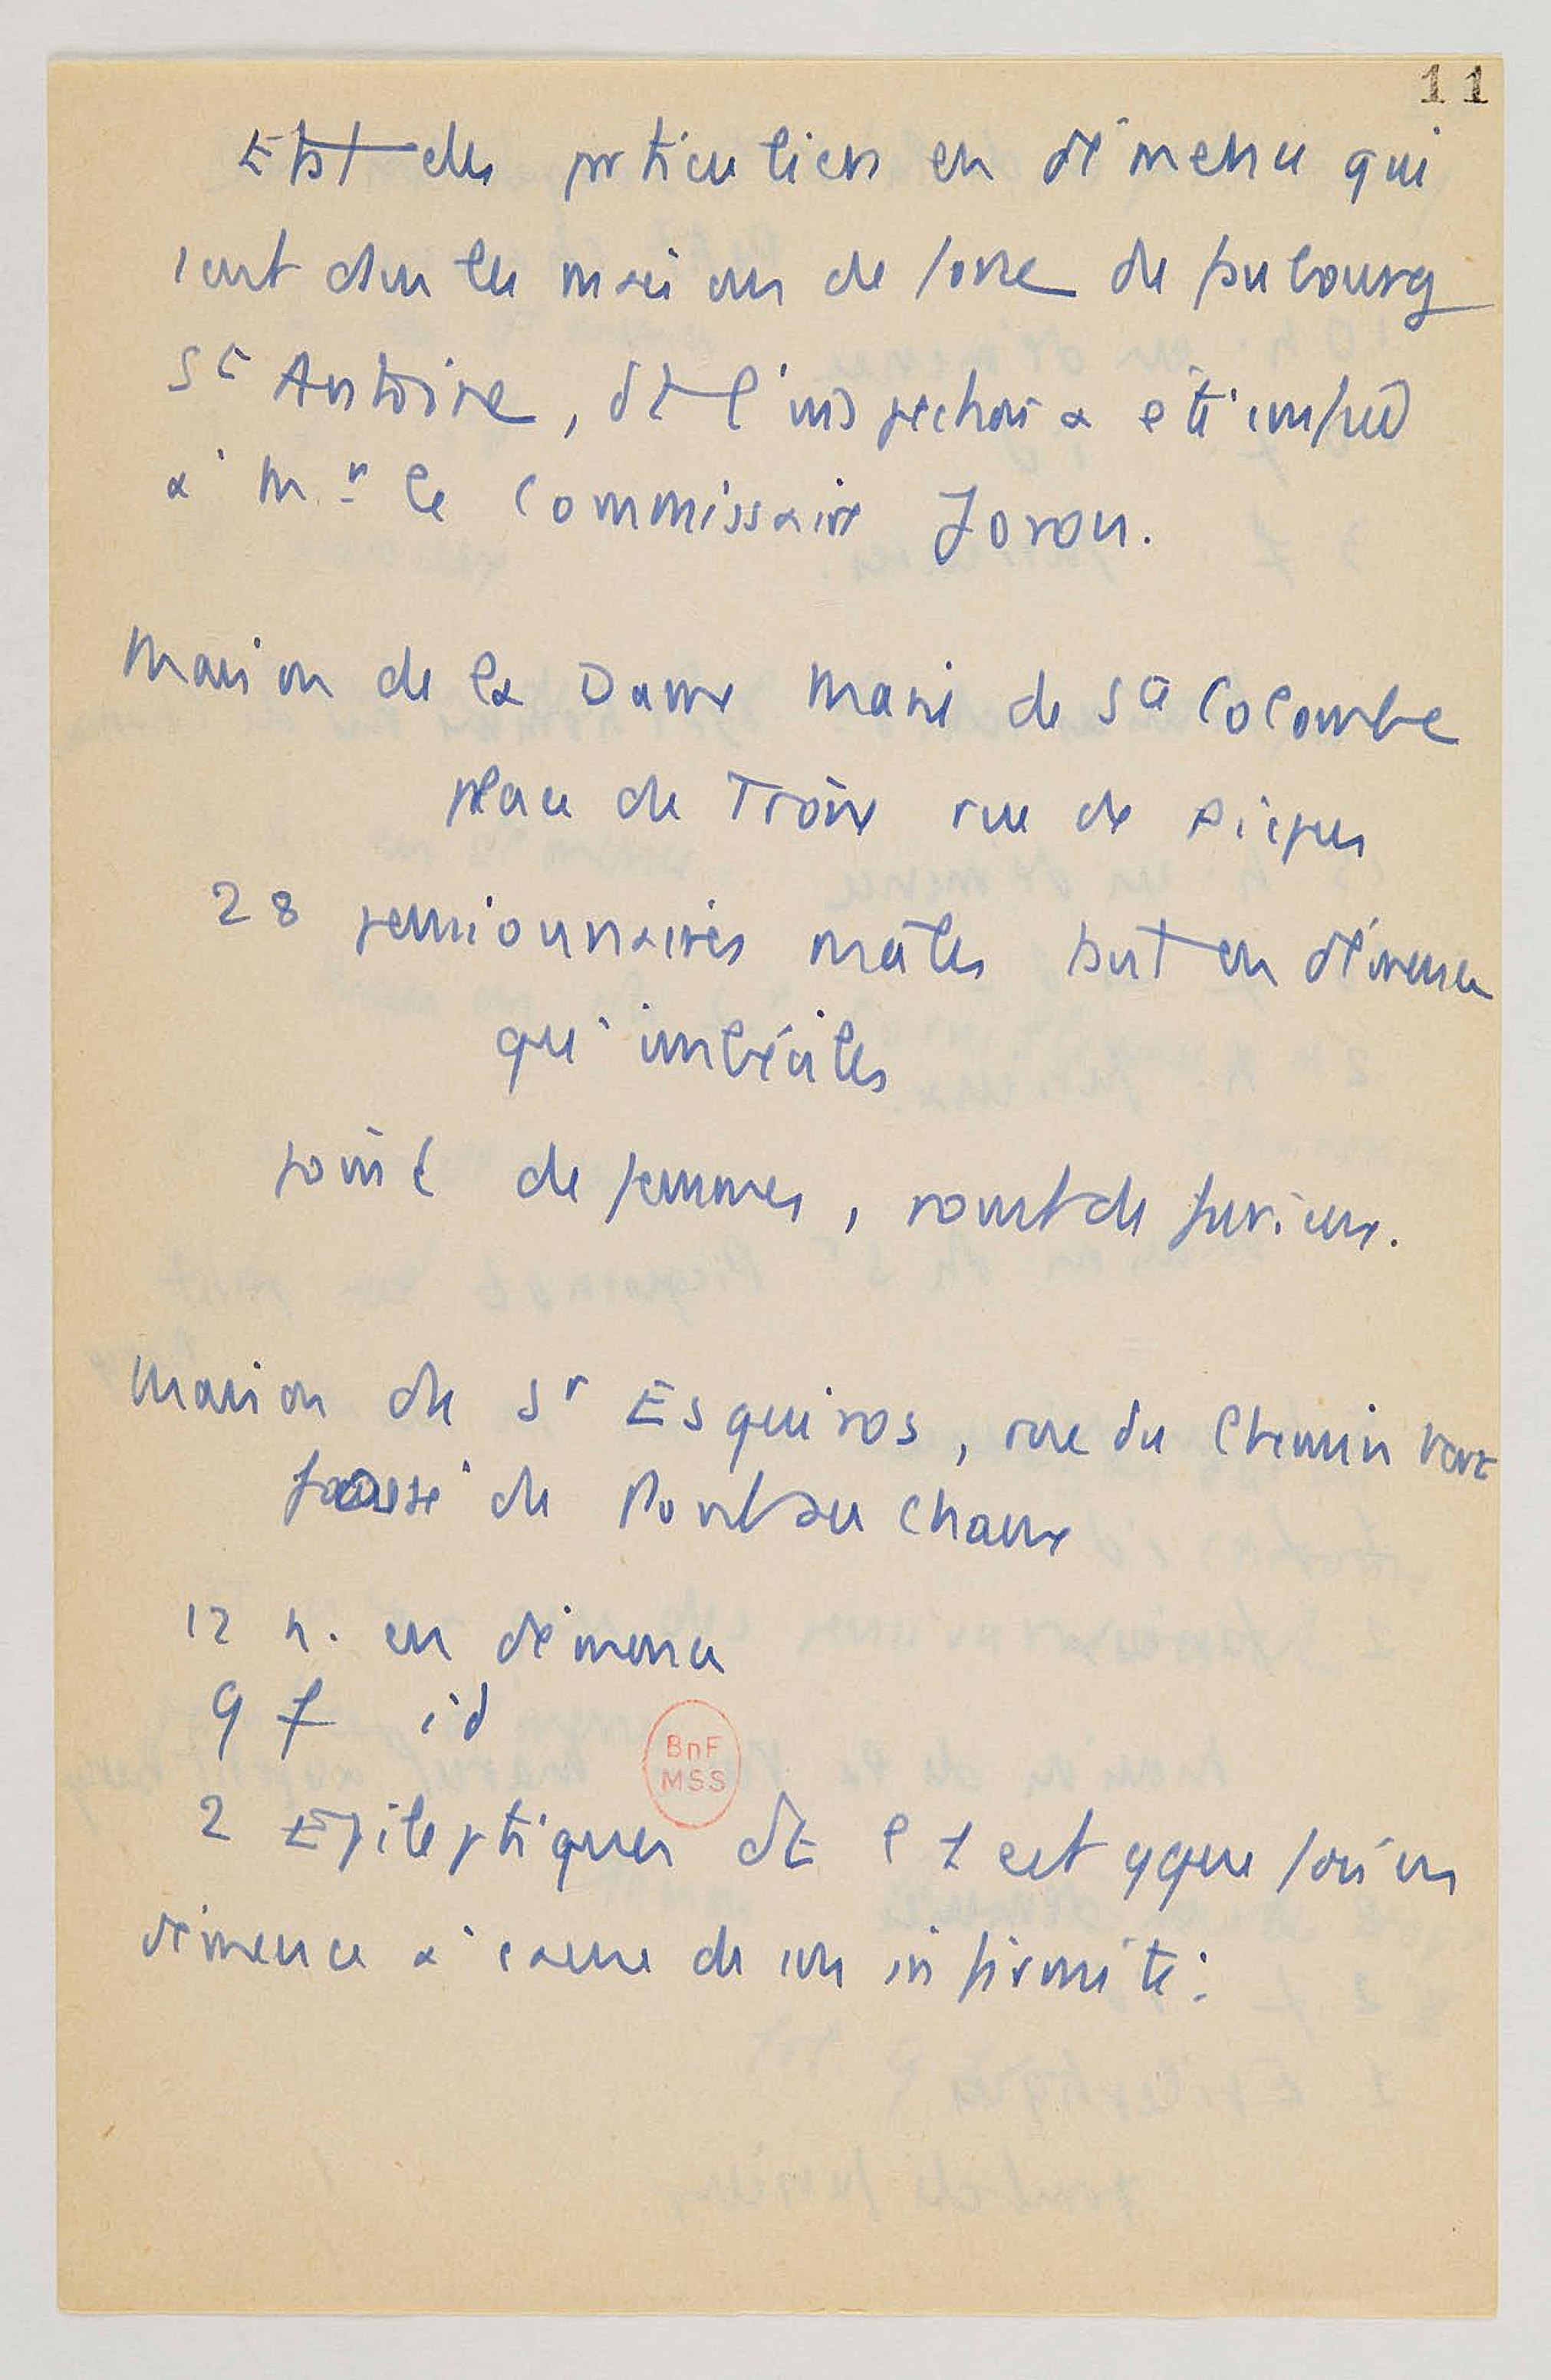 11
Etat des particuliers en démence qui
sont dans les maisons de force du faubourg
St Antoine, dt l'inspection a été confiée
à Mr le Commissaire Joron.
Maison de la Dame Marie de Ste Colombe
place du Trône rue de Picpus
28 pensionnaires mâles tant en démence
qu'imbéciles
point de femmes, point de furieux.
Maison du Sr Esquiros, rue du Chemin Vert
fossé du Pont au Choux
12 h. en démence
9 f id
BnF
MSS
2 Epileptiques dt l'1 est qque fois en
démence à cause de son infirmité.